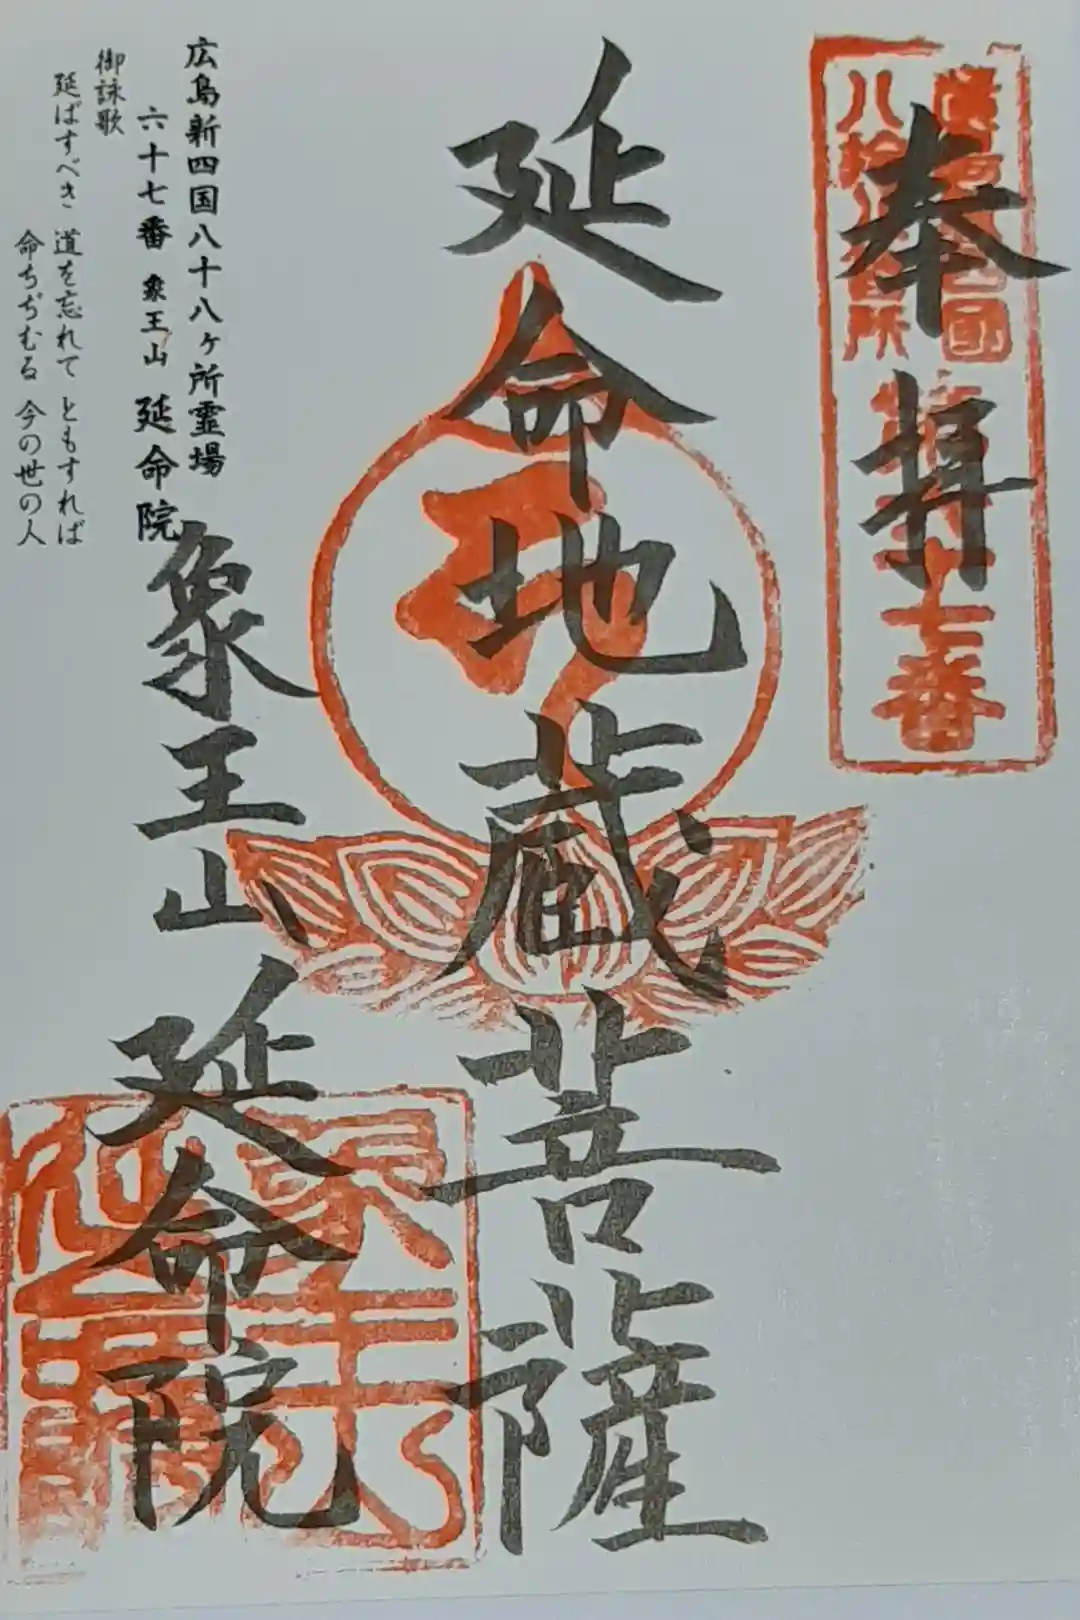 奉拝
八拾八ヶ所
十七番
延命地蔵菩薩
象王山
延命院
広島新四国八十八ヶ所霊場
六十七番 象王山 延命院
御詠歌
延ばすべき 道を忘れて ともすれば
命ちぢむる 今の世の人